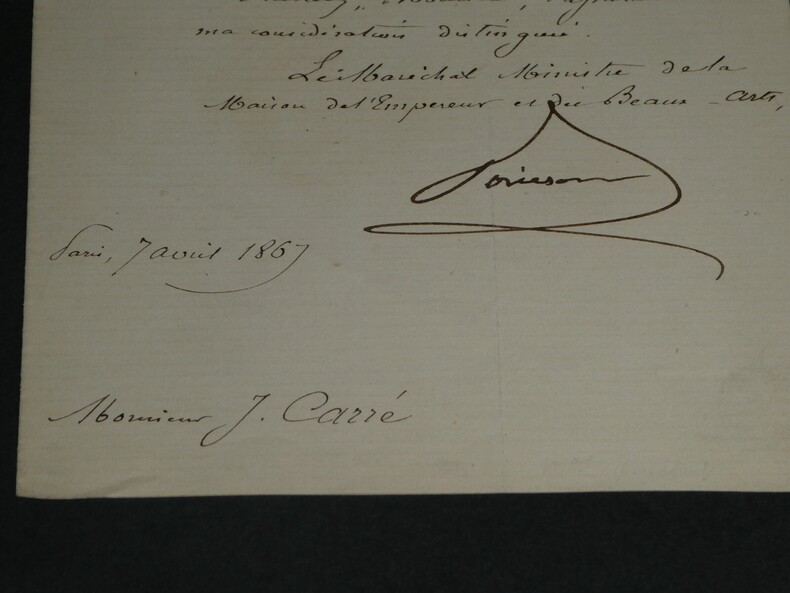 ma considération distinguée.
Le Maréchal Ministre de la
Maison de l'Empereur et des Beaux-Arts,
Paris, 7 avril 1867
Monsieur J. Carré